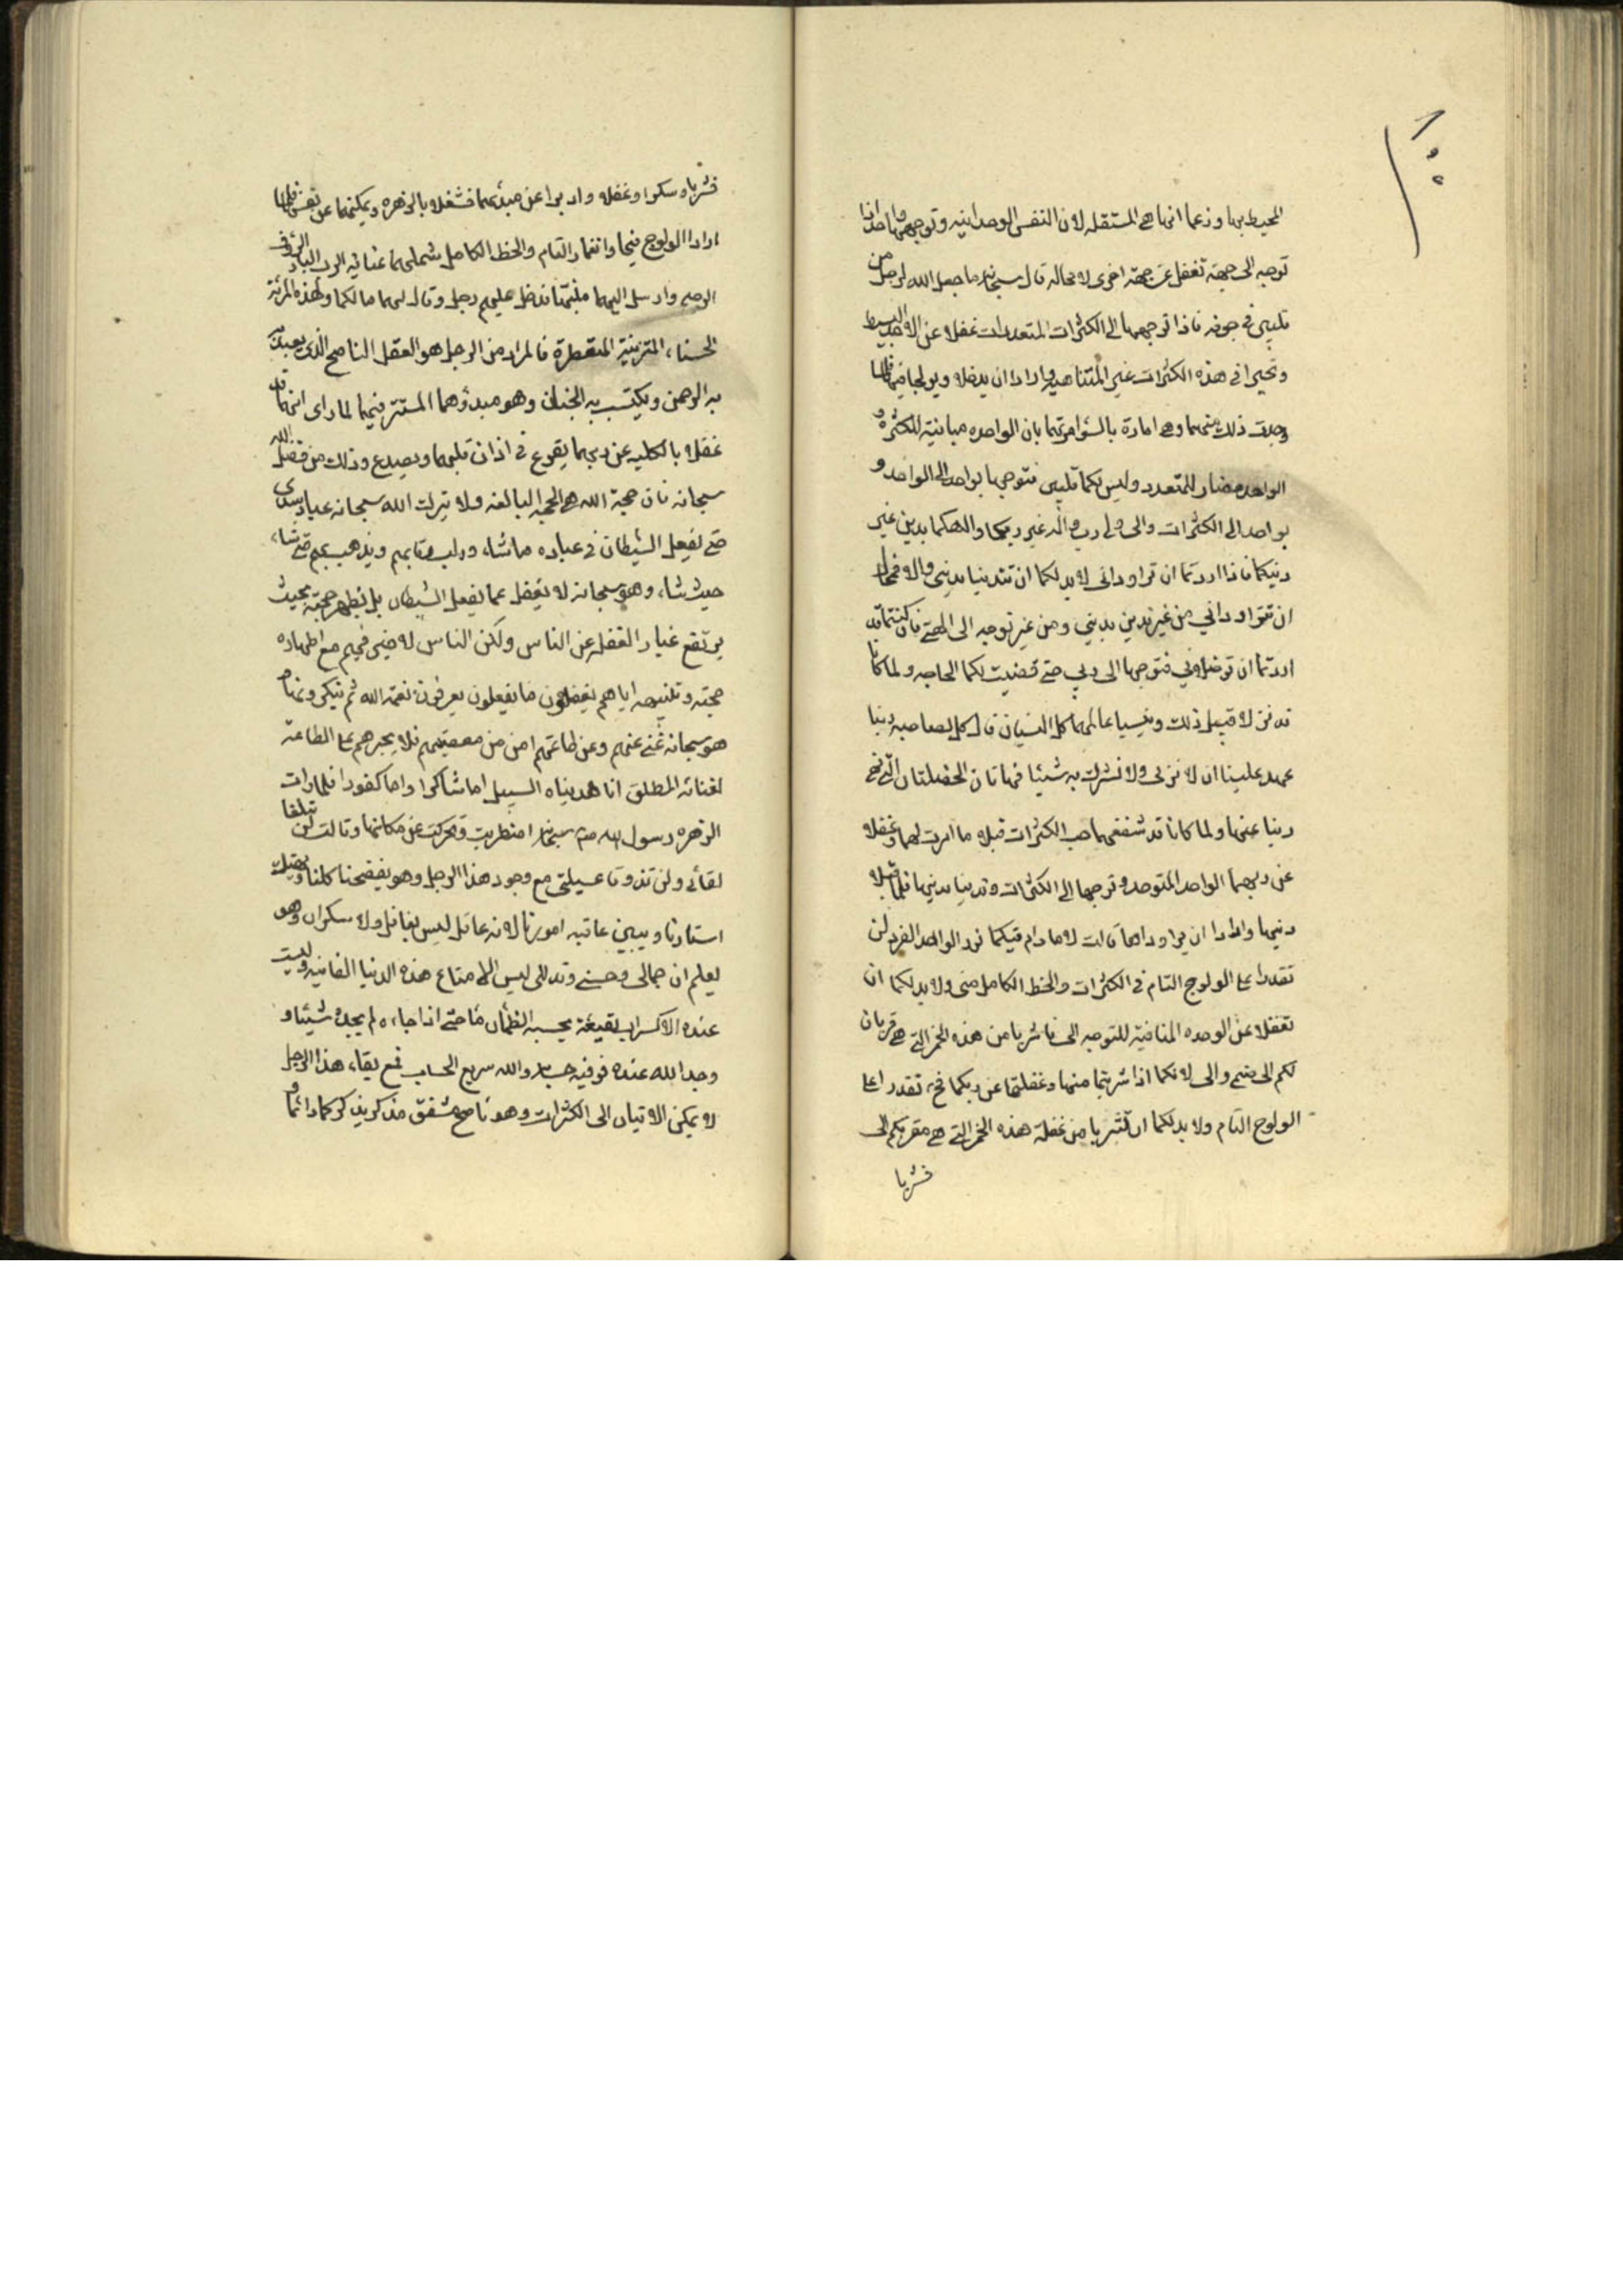 المحیط بها وزعما انها هی المستقله لان النفس الوحدانیه وتوجهها واحد اذا
توجه الی جهة تغفل عن جهة اخری لا محاله قال سبحانه ما جعل الله لرجل من
قلبین فی جوفه فاذا توجهها الی الکثرات المتعددات غفلا عن الاحد البسیط
وتحیرا فی هذه الکثرات غیر المتناهیه وارادا ان یدخلا ویولجا فیها فلما
وجدت ذلک منهما وهی امارة بالسوء امرتهما بان الواحده مباینة للکثرة و
الواحد مضار للمتعدد ولیس لکما قلبین فتوجها بواحد الی الواحد و
بواحد الی الکثرات والی ولی رب واله غیر ربکما والهکما بدین غیر
دینکما فاذا اردتما ان تراودانی لابد لکما ان تتدینا بدینی والا فمحال
ان تراودانی من غیر تدین بدینی ومن غیر توجه الی الهتی فان کنتما قد
اردتما ان ترضیانی فتوجها الی ربی حتی قضیت لکما الحاجه ولما کانا
قد نزلا قبیل ذلک ونسیا عالمهما کل النسیان قال کل لصاحبه ربنا
عهد علینا ان لا نزنی ولا نشرک به شیئا فهاتان الخصلتان التی نهی
ربنا عنها ولما کانا قد شغفهما حب الکثرات قبلا ما امرت لهما وغفلا
عن ربهما الواحد المتوحد وتوجها الی الکثرات وتدینا بدینها فلما قبلا
دینها وارادا ان یراوداها قالت لا ما دام فیکما نور الواحد الفرد لن
تقدرا علی الولوج التام فی الکثرات والحظ الکامل منی ولابد لکما ان
تغفلا عن الوحده المنافیة للتوجه الی فاشربا من هذه الخمر التی هی قربان
لکم الی صنمی والی لانکما اذا شربتما منها وغفلتما عن ربکما فح تقدرا علی
الولوج التام ولابد لکما ان تشربا من غفلة هذه الخمر التی هی مقربکم الی
فشربا
فشربا وسکرا وغفلا وادبرا عن مبدئهما فشغلا بالزهره ویمکنهما عن نفسها فلما
ارادا الولوج فیها وانغمار التام والحظ الکامل شملهما عنایة الرب البار الرؤف
الرحیم وارسل الیهما منبها فدخل علیهم رجل وقال لهما ما لکما ولهذه المرئة
الحسناء المتزینة المتعطرة فالمراد من الرجل هو العقل الناصح الذی یعبد
به الرحمن ویکتسب به الجنان وهو مبدؤهما المستتر فیهما لما رای انهما قد
غفلا بالکلیه عن ربهما یقرع فی اذان قلبهما ویصدع وذلک من فضل الله
سبحانه فان حجة الله هی الحجة البالغه ولا یترک الله سبحانه عباده سدی
حتی یفعل الشیطان فی عباده ما شاء ویذهب بهم حتی شاء
حیث شاء وهو سبحانه لا یغفل عما یفعل الشیطان بل یظهر حجته بحیث
یرتفع غبار الغفله عن الناس ولکن الناس لا خیر فیهم مع اظهاره
حجته وتنبیهه ایاهم یفعلون ما یفعلون یعرفون نعمة الله ثم ینکرونها
هو سبحانه غنی عنهم وعن طاعتهم امن من معصیتهم فلا یجبرهم علی الطاعة
لغنائه المطلق انا هدیناه السبیل اما شاکرا واما کفورا فلما رات
الزهره رسول الله منه سبحانه اضطربت وتحرکت عن مکانها وقالت لن تبلغا
لقائی ولن تذوقا عسیلتی مع وجود هذا الرجل وهو یفضحنا کلنا ویهتک
استارنا ویبین عاقبة امورنا لانه عاقل لیس بغافل ولا سکران وهو
یعلم ان جمالی وحسنی وتدللی لیس الا متاع هذه الدنیا الفانیه ولیست
عنده الا کسراب بقیعة یحسبه الظمأن ماء حتی اذا جاءه لم یجده شیئا و
وجد الله عنده فوفیه حسابه والله سریع الحساب فمع بقاء هذا الرجل
لا یمکن الاتیان الی الکثرات وهو ناصح مشفق مذکر یذکرکما دائما و